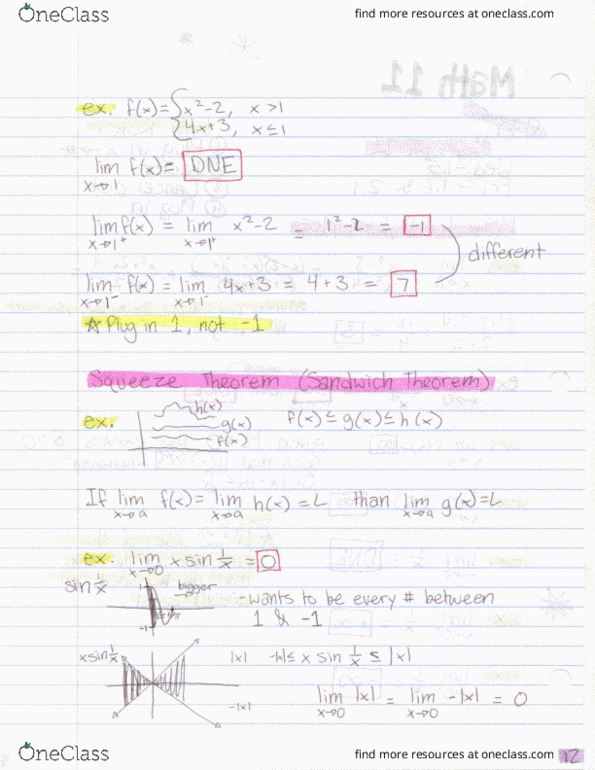 OneClass
find more resources at oneclass.com
Math 11
ex. f(x) = { x² - 2, x > 1
4x + 3, x ≤ 1
lim f(x) = DNE
x→1
lim f(x) = lim x² - 2 = 1² - 2 = -1
x→1⁺ x→1⁺
different
lim f(x) = lim 4x + 3 = 4 + 3 = 7
x→1⁻ x→1⁻
☆ Plug in 1, not -1
Squeeze Theorem (Sandwich Theorem)
ex. h(x) g(x) f(x) f(x) ≤ g(x) ≤ h(x)
If lim f(x) = lim h(x) = L than lim g(x) = L
x→a x→a x→a
ex. lim x sin 1/x = 0
x→0
sin 1/x 1 -1 bigger
- wants to be every # between
1 & -1
x sin 1/x |x| -|x| ≤ x sin 1/x ≤ |x|
-|x|
lim |x| = lim -|x| = 0
x→0 x→0
OneClass
find more resources at oneclass.com
12